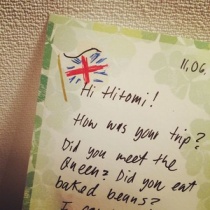 11,06.
Hi Hitomi!
How was your trip?
Did you meet the
Queen? Did you eat
baked beans?